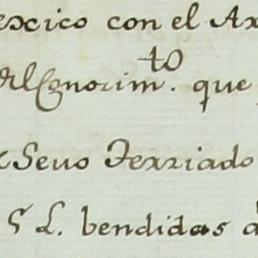 exico con el Ax
Al Conorim.to que
Sevo Terriado
S L. bendidas a